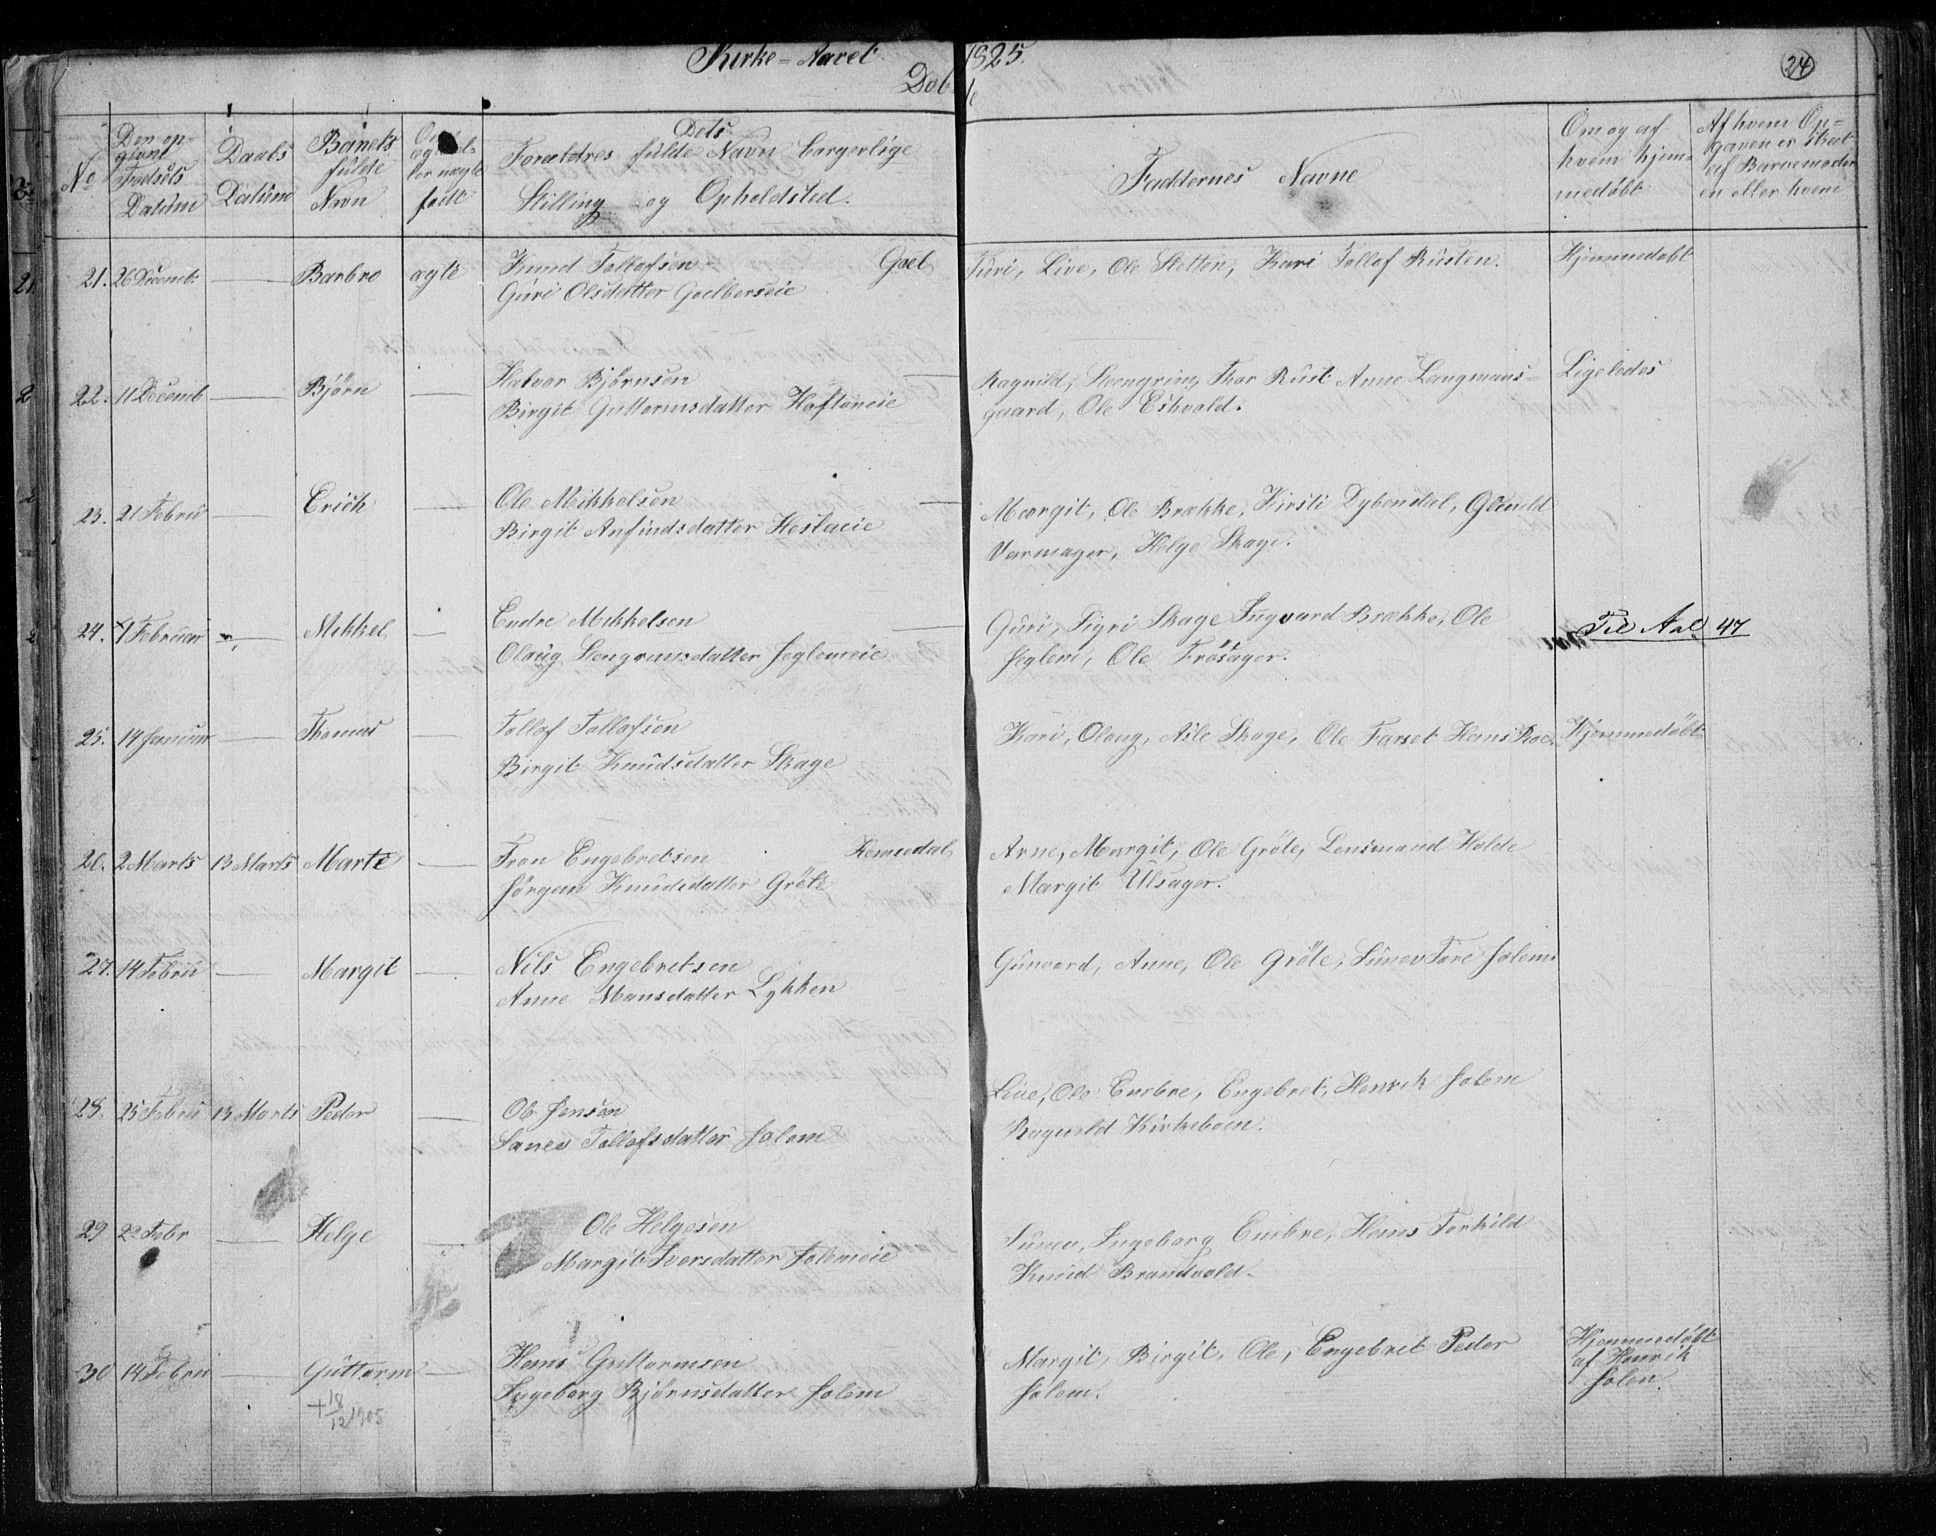 Kirke-Aaret 1825.
24
Døbte
No
Den op-
givne
Fødsels
Datum
Daabs
Datum
Barnets
fulde
Navn
født
Dets
Forældres fulde Navn borgerlige
Stilling og Opholdsted.
Faddernes Navne
Om og af
hvem hjem-
medøbt
Af hvem Op-
gaven er skeet
af Barnemoder
en eller hvem
21. 26 Decemb: Barbro ægte Knud Tollefsen Goel
Guri Olsdatter Goelberseie
Turi, Live, Ole Sletten, Kari Tollef Rusten. Hjemmedøbt
22. 11 Decemb Bjørn Halvor Bjørnsen
Birgit Guttormsdatter Haftoneie
Ragnild, Steengrim, Thor Rust Anne Langmans-
gaard, Ole Eshvold. Ligeledes
23. 21 Febru Erich Ole Mikkelsen
Birgit Anfindsdatter
Margit, Ole Brække, Kirsti Dybendal,
Helge Skage.
24. 1 Februar Mikkel Endre Mikkelsen
Olaug
Guri, Sigri Skage Ingvard Brække, Ole
Ole Frøsager.
Til Aal 47
25. 14 Januar Thomas Tollef Tollefsen
Birgit Knudsdatter Skage
Kari, Olaug, Asle Skage, Ole Farset Hans Roe Hjemmedøbt
26. 2 Marts 13 Marts Marte Tron Engebretsen Hemsedal
Jørgen Knudsdatter Grøte
Arne, Margit, Ole Grøte, Lensmand Holde
Margit Ulsager.
27. 14 Febru Margit Nils Engebretsen
Anne Monsdatter Lykken
Gunvord, Anne, Ole Grøte, Sunev Tore Solem
28. 25 Febru 13 Marts Peder Ole Jensen
Sunev Tollefsdatter Solem
Live, Ole Embre, Engebret, Henrik Solem
Ragnild Kirkeboen.
29 22 Febr Helge Ole Helgesen
Margit Iversdatter Solemeie
Sunev, Ingeborg Embre, Hans Torkild
Knud Brandvold.
30 14 Febru Guttorm Hans Guttormsen
Ingeborg Bjørnsdatter Solem
Margit, Birgit, Ole, Engebret Peder
Solem.
Hjemmedøbt
af Henrik
Solem.
+18/12 1905